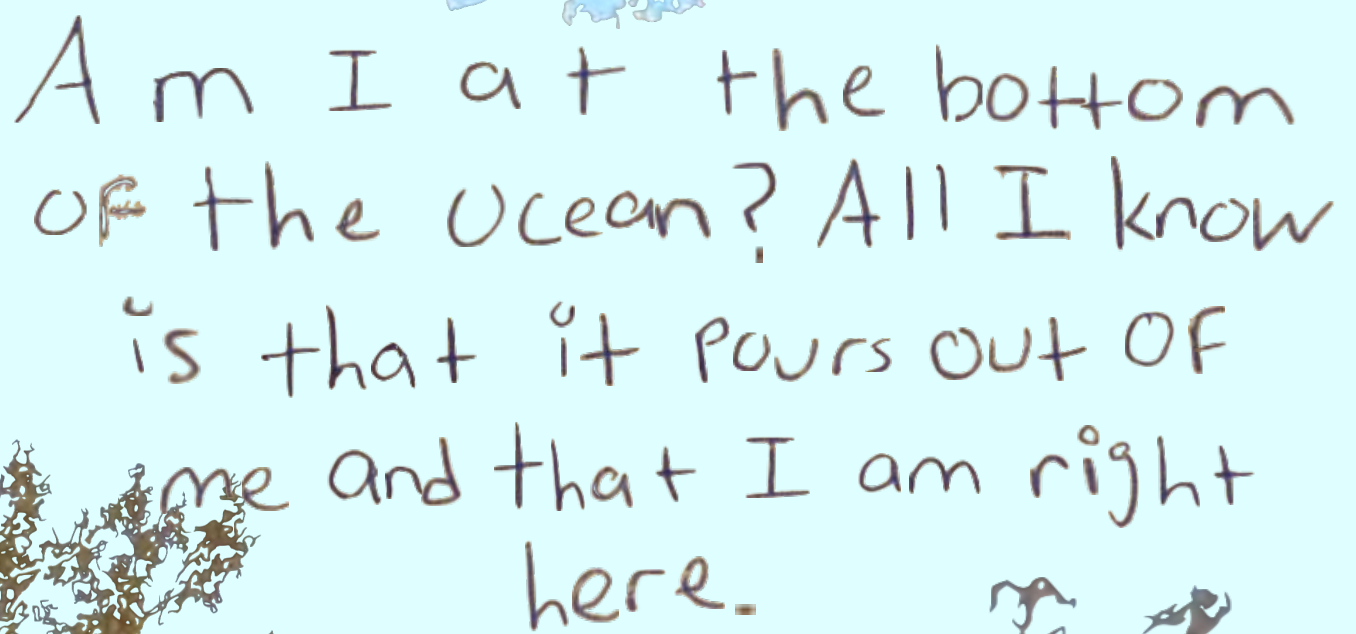 Am I at the bottom
of the ocean? All I know
is that it pours out of
me and that I am right
here.